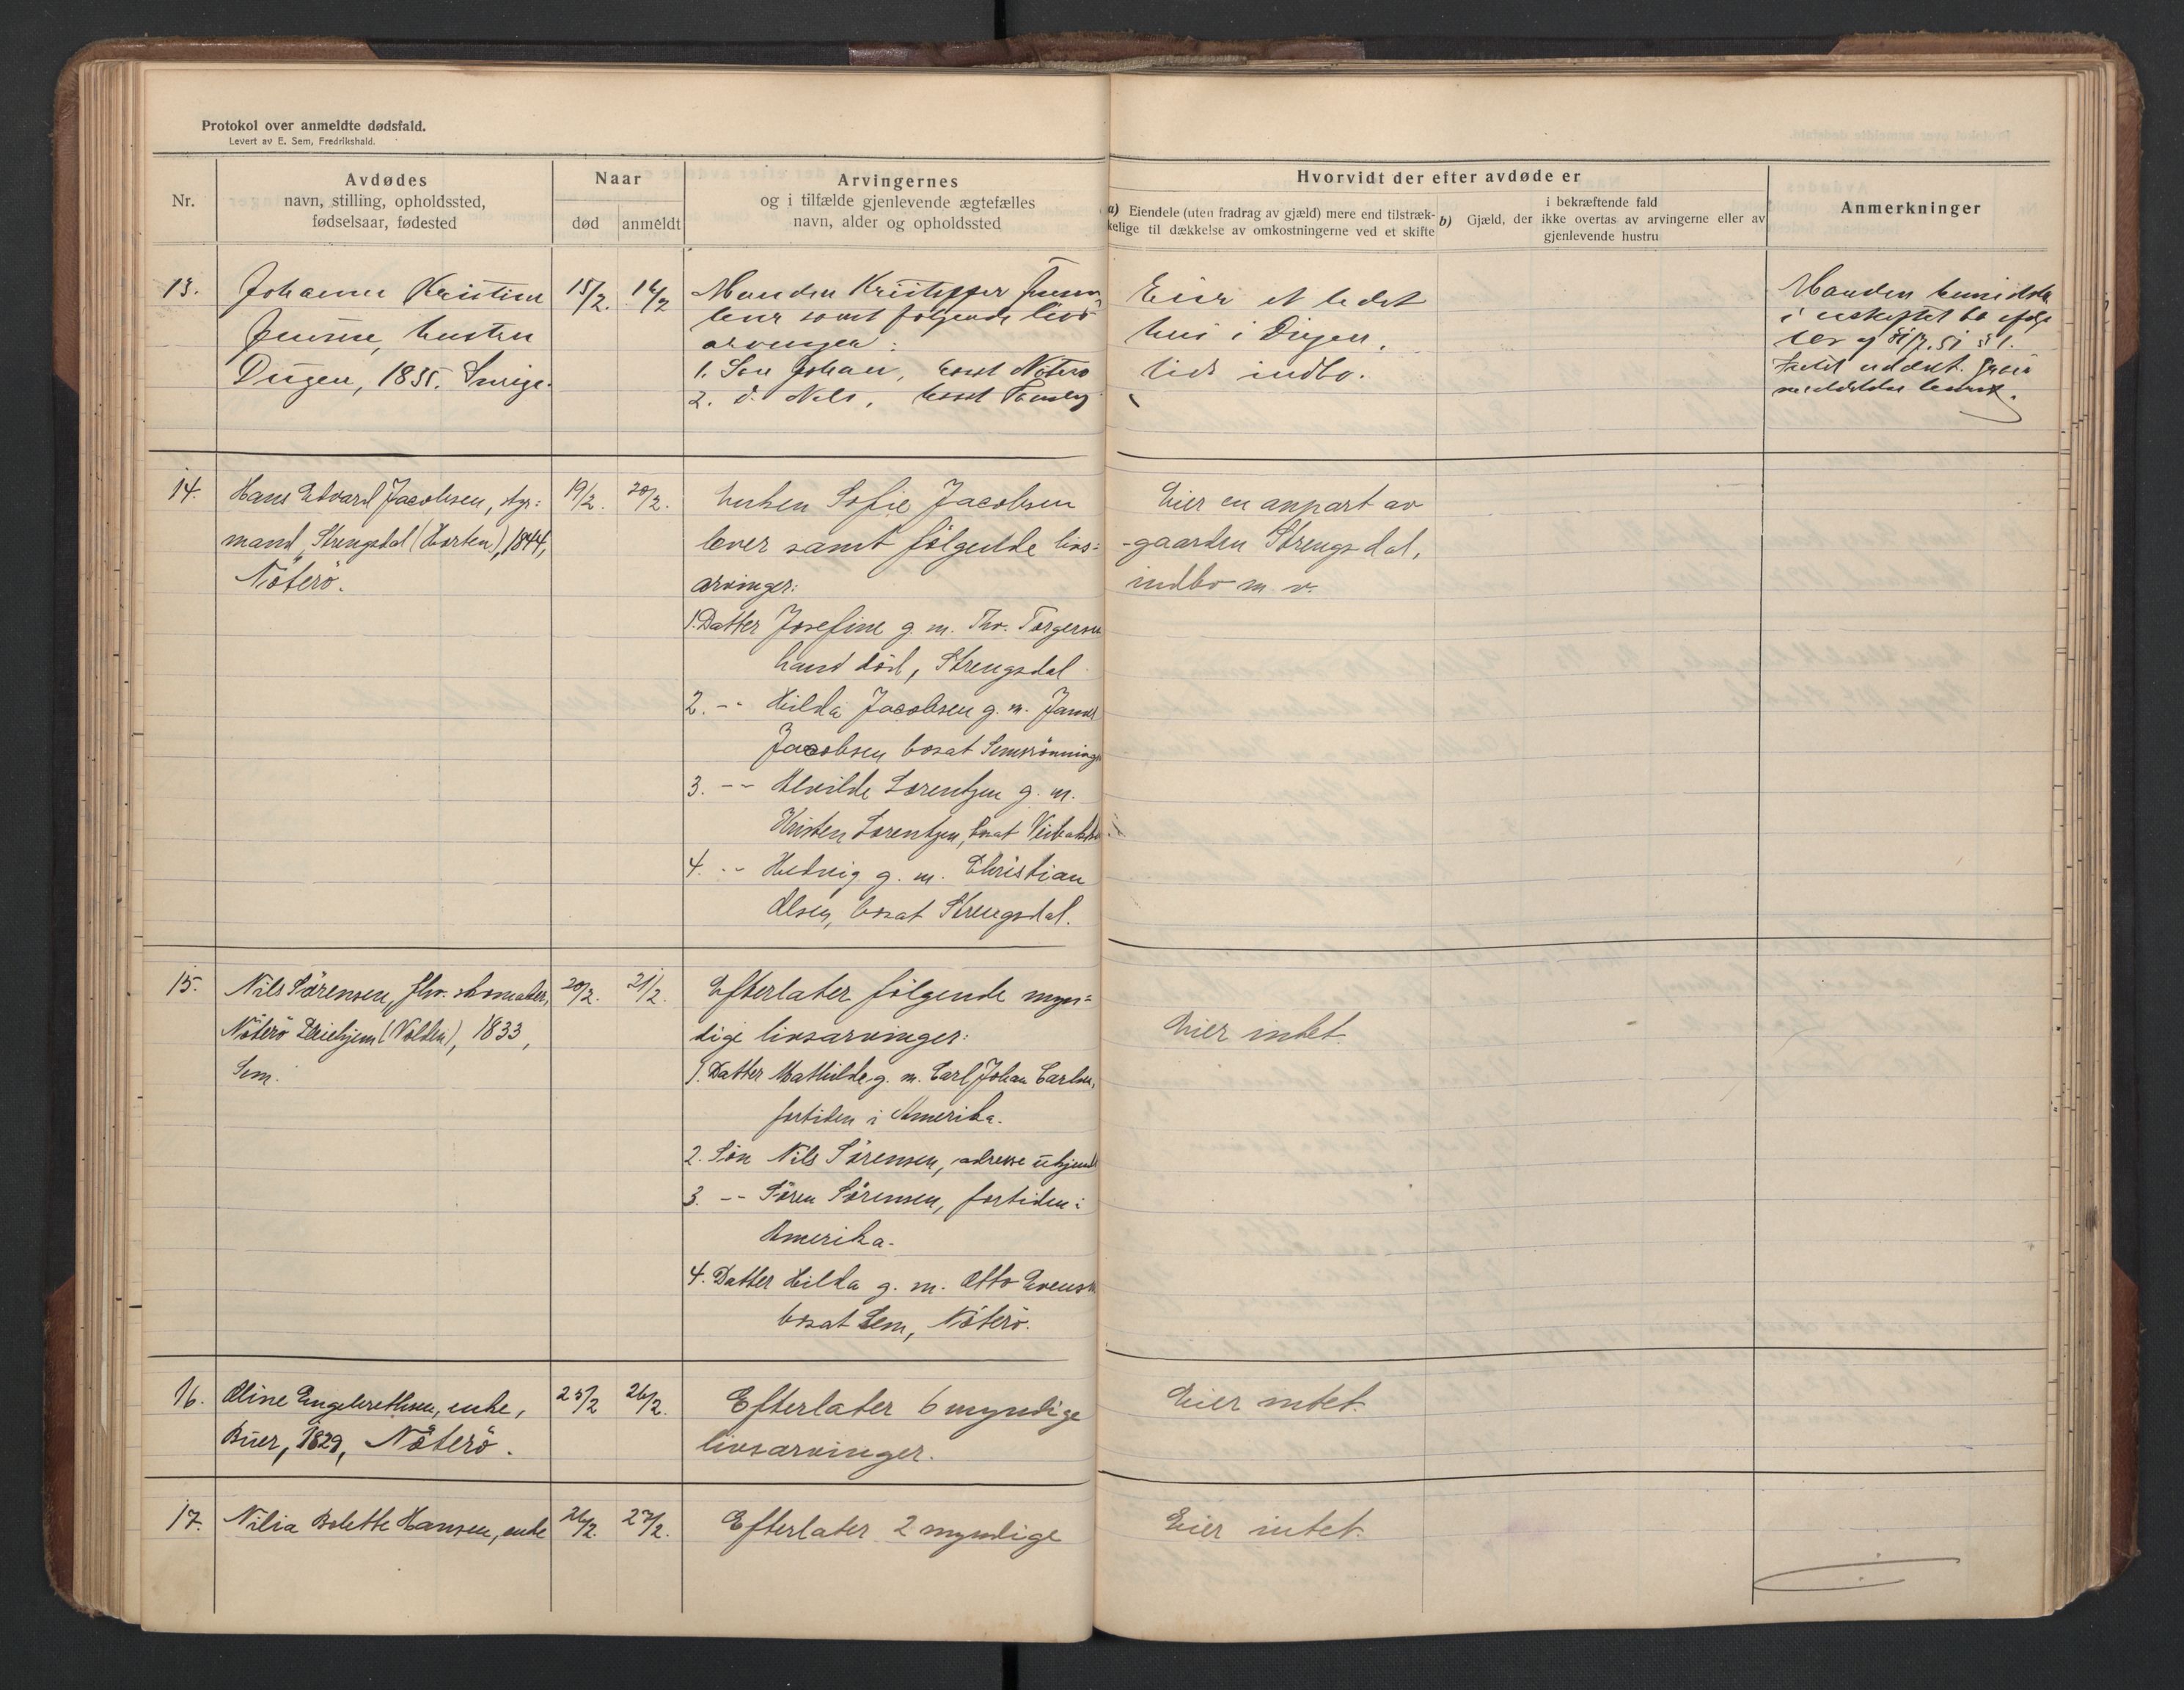 Protokol over anmeldte dødsfald.
Levert av E. Sem, Fredrikshald.
Nr.
Avdødes
navn, stilling, opholdssted,
fødselsaar, fødested
Naar
død
anmeldt
Arvingernes
og i tilfælde gjenlevende ægtefælles
navn, alder og opholdssted
Hvorvidt der efter avdøde er
a) Eiendele (uten fradrag av gjæld) mere end tilstræk-
kelige til dækkelse av omkostningerne ved et skifte
b) Gjæld, der
i bekræftende fald
ikke overtas av arvingerne eller av
gjenlevende hustru
Anmerkninger
13.
Johanne Kristine
Jensen, hustru
Dugen, 1835. Sverige.
15/2. 16/2
Manden Kristoffer Jensen
lever samt følgende livs
arvinger:
1. Søn Johan, bosat Nøterø
2. d. Nils, bosat Tønsberg
Eier et lidet
hus i Dugen,
lidt indbo.
Manden
i uskiftet bo ifølge
lov af 31/7. 51 § 1.
14.
Hans Edvard Jacobsen, styr=
mand, Strengsdal (Horten), 1844,
Nøterø.
19/2. 20/2.
Enken Sofie Jacobsen
lever samt følgende livs=
arvinger:
1. Datter Josefine g. m. Thv. Torgersen
hand død, Strengsdal
2. -- Hilda Jacobsen g. m. James
Jacobsen bosat Semsrønningen
3. -- Alvilde Lorentzen g. m.
Kristen Lorentzen, bosat
4. -- Hedvig g. m. Christian
Olsen, bosat Strengsdal.
Eier en anpart av
-gaarden Strengsdal,
indbo m. v.
15.
Nils Sørensen, fhv.
Nøterø Pleiehjem (Nolden), 1833,
Sem.
20/2. 21/2.
Efterlater følgende myn=
dige livsarvinger:
1. Datter Mathilde g. m. Carl Johan Carlsen,
fortiden i Amerika.
2. Søn Nils Sørensen, adresse ukjendt
3. -- Søren Sørensen, fortiden i
Amerika.
4. Datter Hilda g. m. Otto Evensen
bosat Sem, Nøterø.
Eier intet.
16.
Oline Engebrethsen, enke,
Buer, 1829, Nøterø.
25/2 26/2.
Efterlater 6 myndige
livsarvinger.
Eier intet.
17.
Nilia Bolette Hansen, enke
26/2. 27/2.
Efterlater 2 myndige
Eier intet.